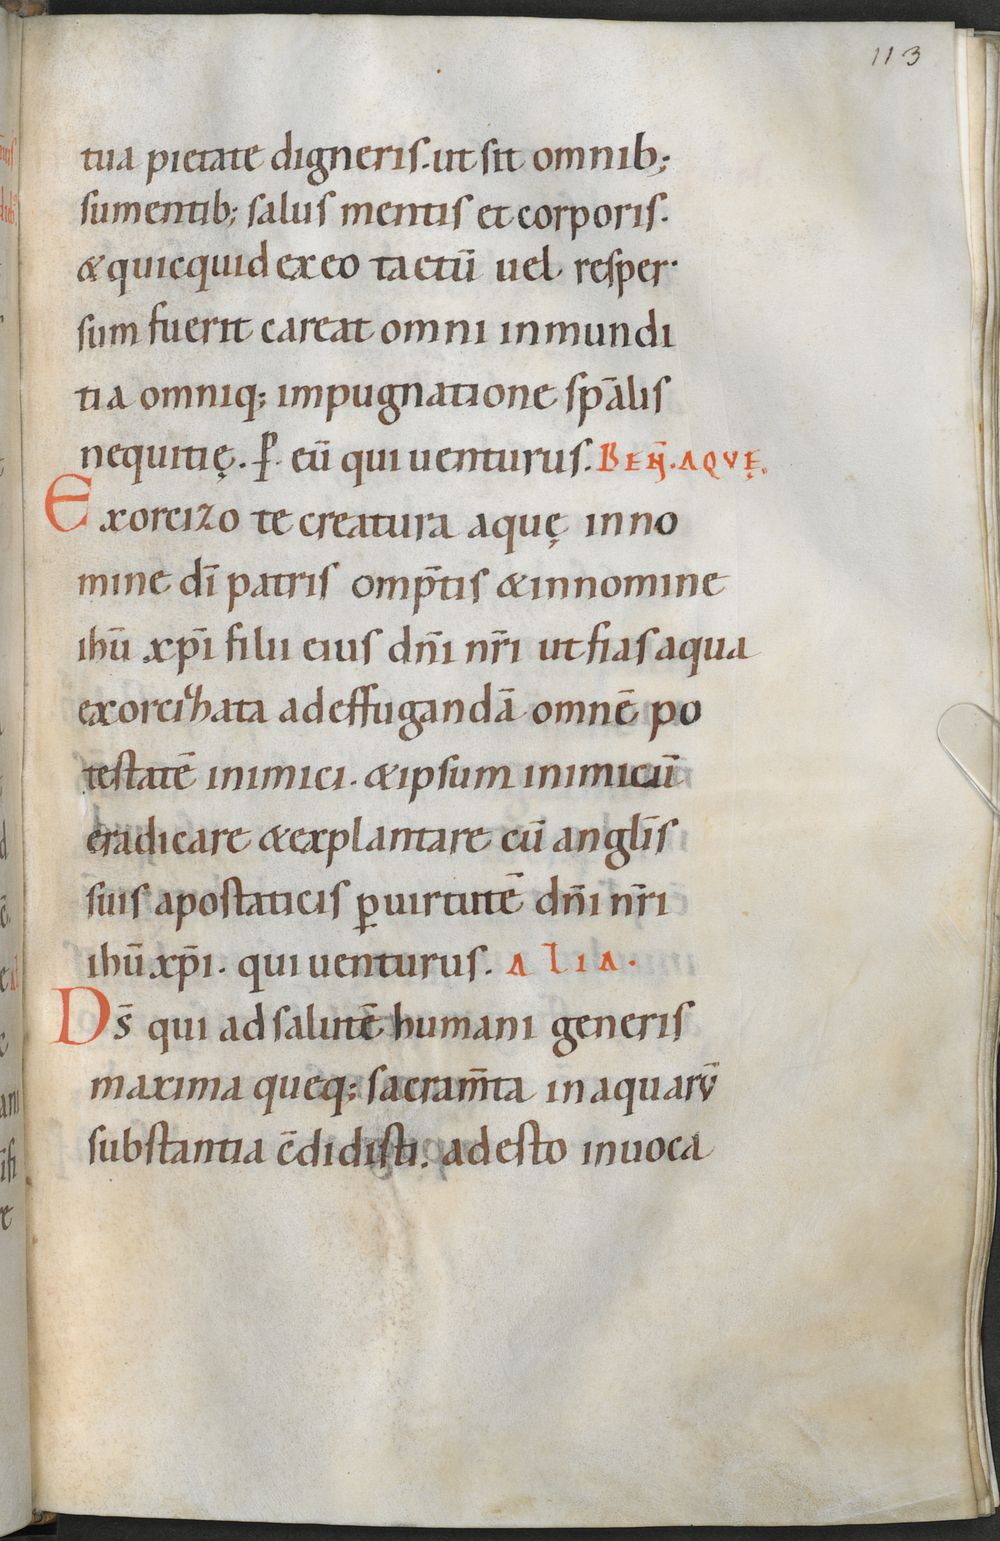 113
tua pietate digneris. ut sit omnib;
sumentib; salus mentis et corporis.
& quicquid ex eo tactū uel resper
sum fuerit careat omni inmundi
tia omniq; impugnatione sp̄alis
nequitię. ꝑ eū qui uenturus. BEN̄. AQVĘ.
Exorcizo te creatura aquę in no
mine dī patris omp̄tis & in nomine
ihū xp̄i filii eius dn̄i nr̄i ut fias aqua
exorcizata ad effugandā omnē po
testatē inimici. & ipsum inimicū
eradicare & explantare cū anglīs
suis apostaticis ꝑ uirtutē dn̄i nr̄i
ihū xp̄i. qui uenturus. ALIA.
Ds̄ qui ad salutē humani generis
maxima queq; sacram̄ta in aquarū
substantia c̄didisti. adesto inuoca